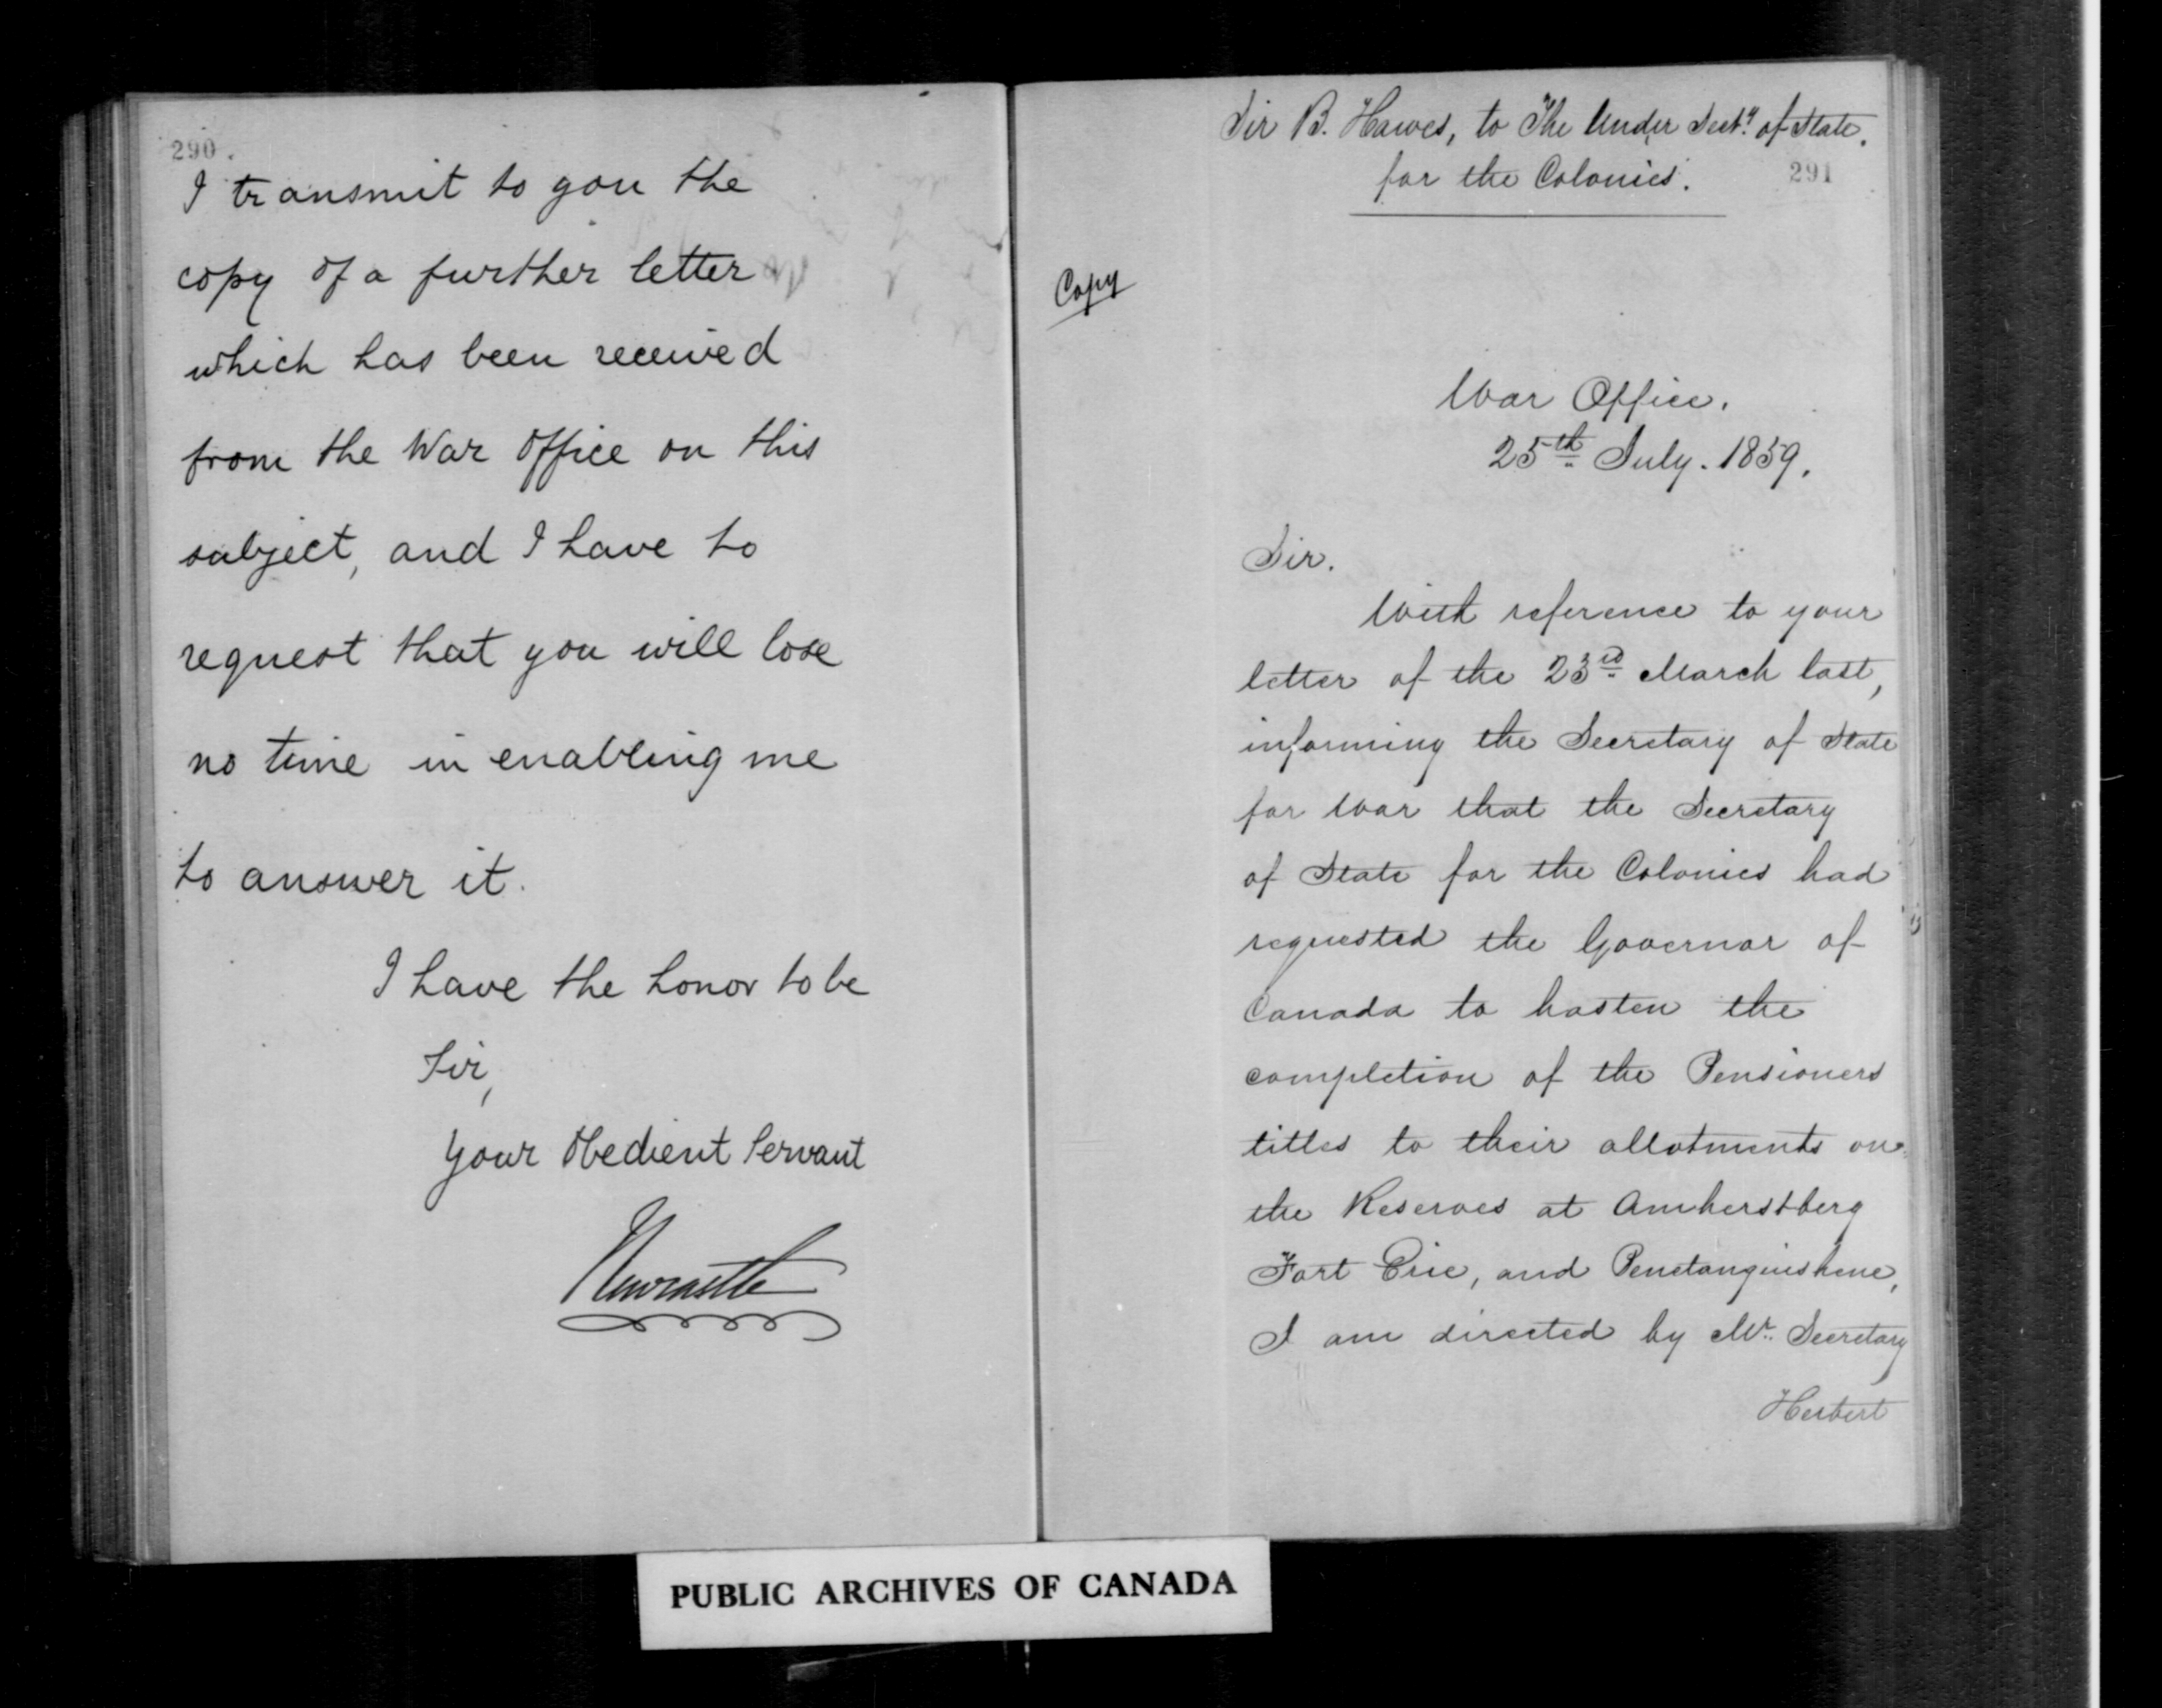 290.
I transmit to you the
copy of a further letter
which has been received
from the War Office on this
subject, and I have to
request that you will lose
no time in enabling me
to answer it.
I have the honor to be
Sir,
Your Obedient Servant
Newcastle
Sir B. Hawes, to The Under Secty. of State.
for the Colonies.
291
Copy
War Office.
25th July. 1859.
Sir.
With reference to your
letter of the 23rd March last,
informing the Secretary of State
for War that the Secretary
of State for the Colonies had
requested the Governor of
Canada to hasten the
completion of the Pensioners
titles to their allotments on
the Reserves at Amherstberg
Fort Erie, and Penetanguishene,
I am directed by Mr. Secretary
Herbert
PUBLIC ARCHIVES OF CANADA